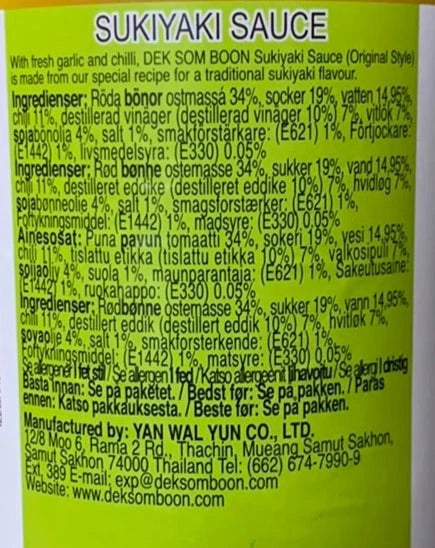 SUKIYAKI SAUCE
With fresh garlic and chilli, DEK SOM BOON Sukiyaki Sauce (Original Style)
is made from our special recipe for a traditional sukiyaki flavour.
Ingredienser: Röda bönor ostmassá 34%, socker 19%, vatten 14,95%,
chili 11%, destillerad vinäger (destillerad vinäger 10%) 7%, vitlök 7%,
sojabönolja 4%, salt 1%, smakförstärkare: (E621) 1%, Förtjockare:
(E1442) 1%, livsmedelsyra: (E330) 0.05%
Ingredienser: Rød bønne ostemasse 34%, sukker 19%, vand 14,95%,
chili 11%, destilleret eddike (destilleret eddike 10%) 7%, hvidløg 7%,
sojabønneolie 4%, salt 1%, smagsforstærker: (E621) 1%,
Fortykningsmiddel: (E1442) 1%, madsyre: (E330) 0,05%
Ainesosat: Puna pavun tomaatti 34%, sokeri 19%, vesi 14,95%,
chili 11%, tislattu etikka (tislattu etikka 10%) 7%, valkosipuli 7%,
soijaöljy 4%, suola 1%, maunparantaja: (E621) 1%, Sakeutusaine:
(E1442) 1%, ruokahappo: (E330) 0.05%
Ingredienser: Rødbønne ostemasse 34%, sukker 19%, vann 14,95%,
chili 11%, destillert eddik (destillert eddik 10%) 7%, hvitløk 7%,
soyaolje 4%, salt 1%, smakforsterkende: (E621) 1%,
Fortykningsmiddel: (E1442) 1%, matsyre: (E330) 0,05%
Se allergener i fet stil / Se allergen i fed / Katso allergeenit lihavoitu / Se allergi i dristig
Bästa innan: Se på paketet. / Bedst før: Se på pakken. / Paras
ennen: Katso pakkauksesta. / Beste før: Se på pakken.
Manufactured by: YAN WAL YUN CO., LTD.
12/8 Moo 6, Rama 2 Rd., Thachin, Mueang Samut Sakhon,
Samut Sakhon 74000 Thailand Tel: (662) 674-7990-9
Ext. 389 E-mail: exp@deksomboon.com
Website: www.deksomboon.com